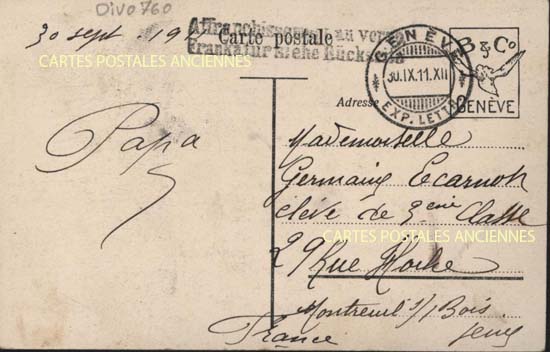 Oivo760
30 sept. 191
Affranchissement au verso
Frankatur siehe Rückseite
Carte postale
GENÈVE
30.IX.11.XII
EXP. LETTR.
B & Co
GENÈVE
CARTES POSTALES ANCIENNES
Adresse
Papa
Mademoiselle
Germaine Lecarnoh
élève de 3eme Classe
CARTES POSTALES ANCIENNES
29 Rue Hoche
Montreuil s/s Bois
Seine
France